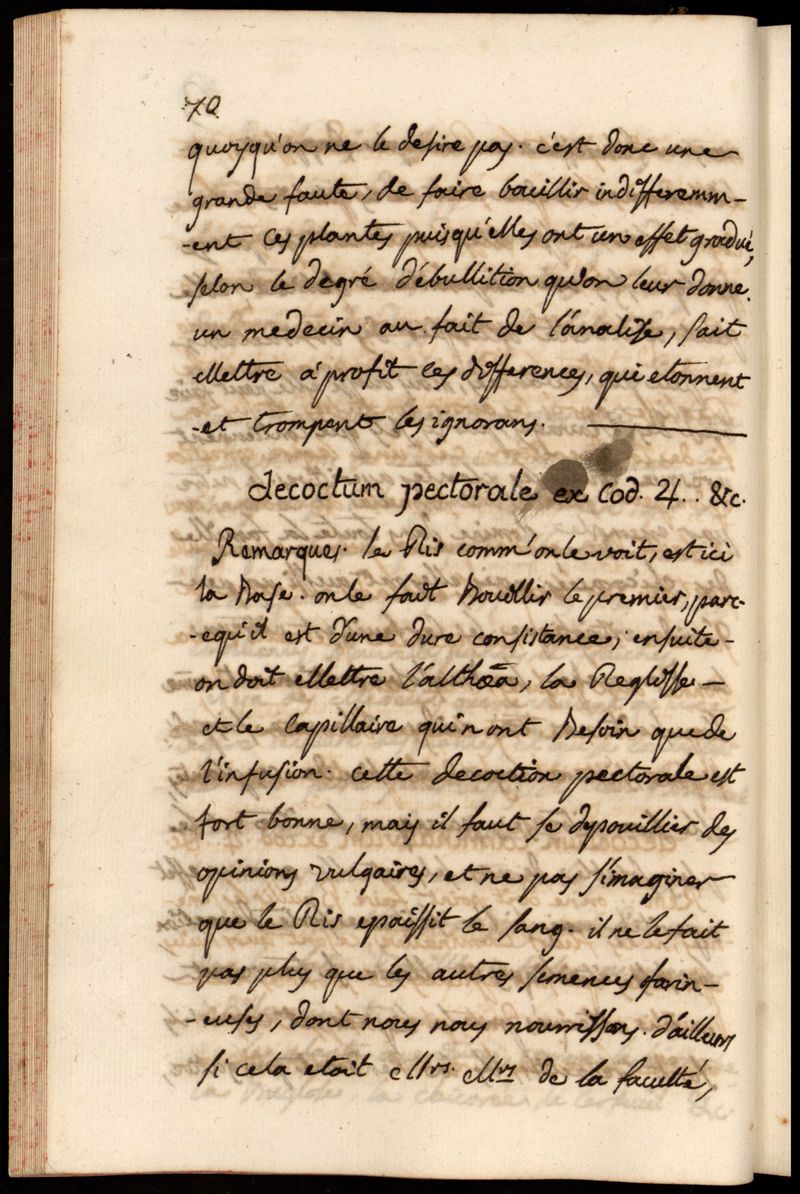 70
quoyqu'on ne le desire pas. c'est donc une
grande faute, de faire bouillir indifferemm-
-ent ces plantes puisqu'elles ont un effet gradué,
selon le degré d'ébullition qu'on leur donne.
un medecin au fait de l'ánalise, sait
Mettre a' profit ces differences, qui etonnent
-et trompent les ignorans.
decoctum pectorale ex Cod. 24.. &c.
Remarques. le Ris comm'on le voit, est ici
la Base. on le fait Bouillir le premier, parc-
-equ'il est d'une dure consistance; ensuite-
on doit Mettre l'althœa, la Reglisse-
et le Capillaire qui n'ont Besoin que de
l'infusion. cette decoction pectorale est
fort bonne, mais il faut se depouillier des
opinions vulgaires, et ne pas s'imaginer
que le Ris epaissit le sang. il ne le fait
pas plus que les autres semences farin-
-euses, dont nous nous nourrissons. d'ailleurs
si cela etoit Mrs. Mrs de la faculté,